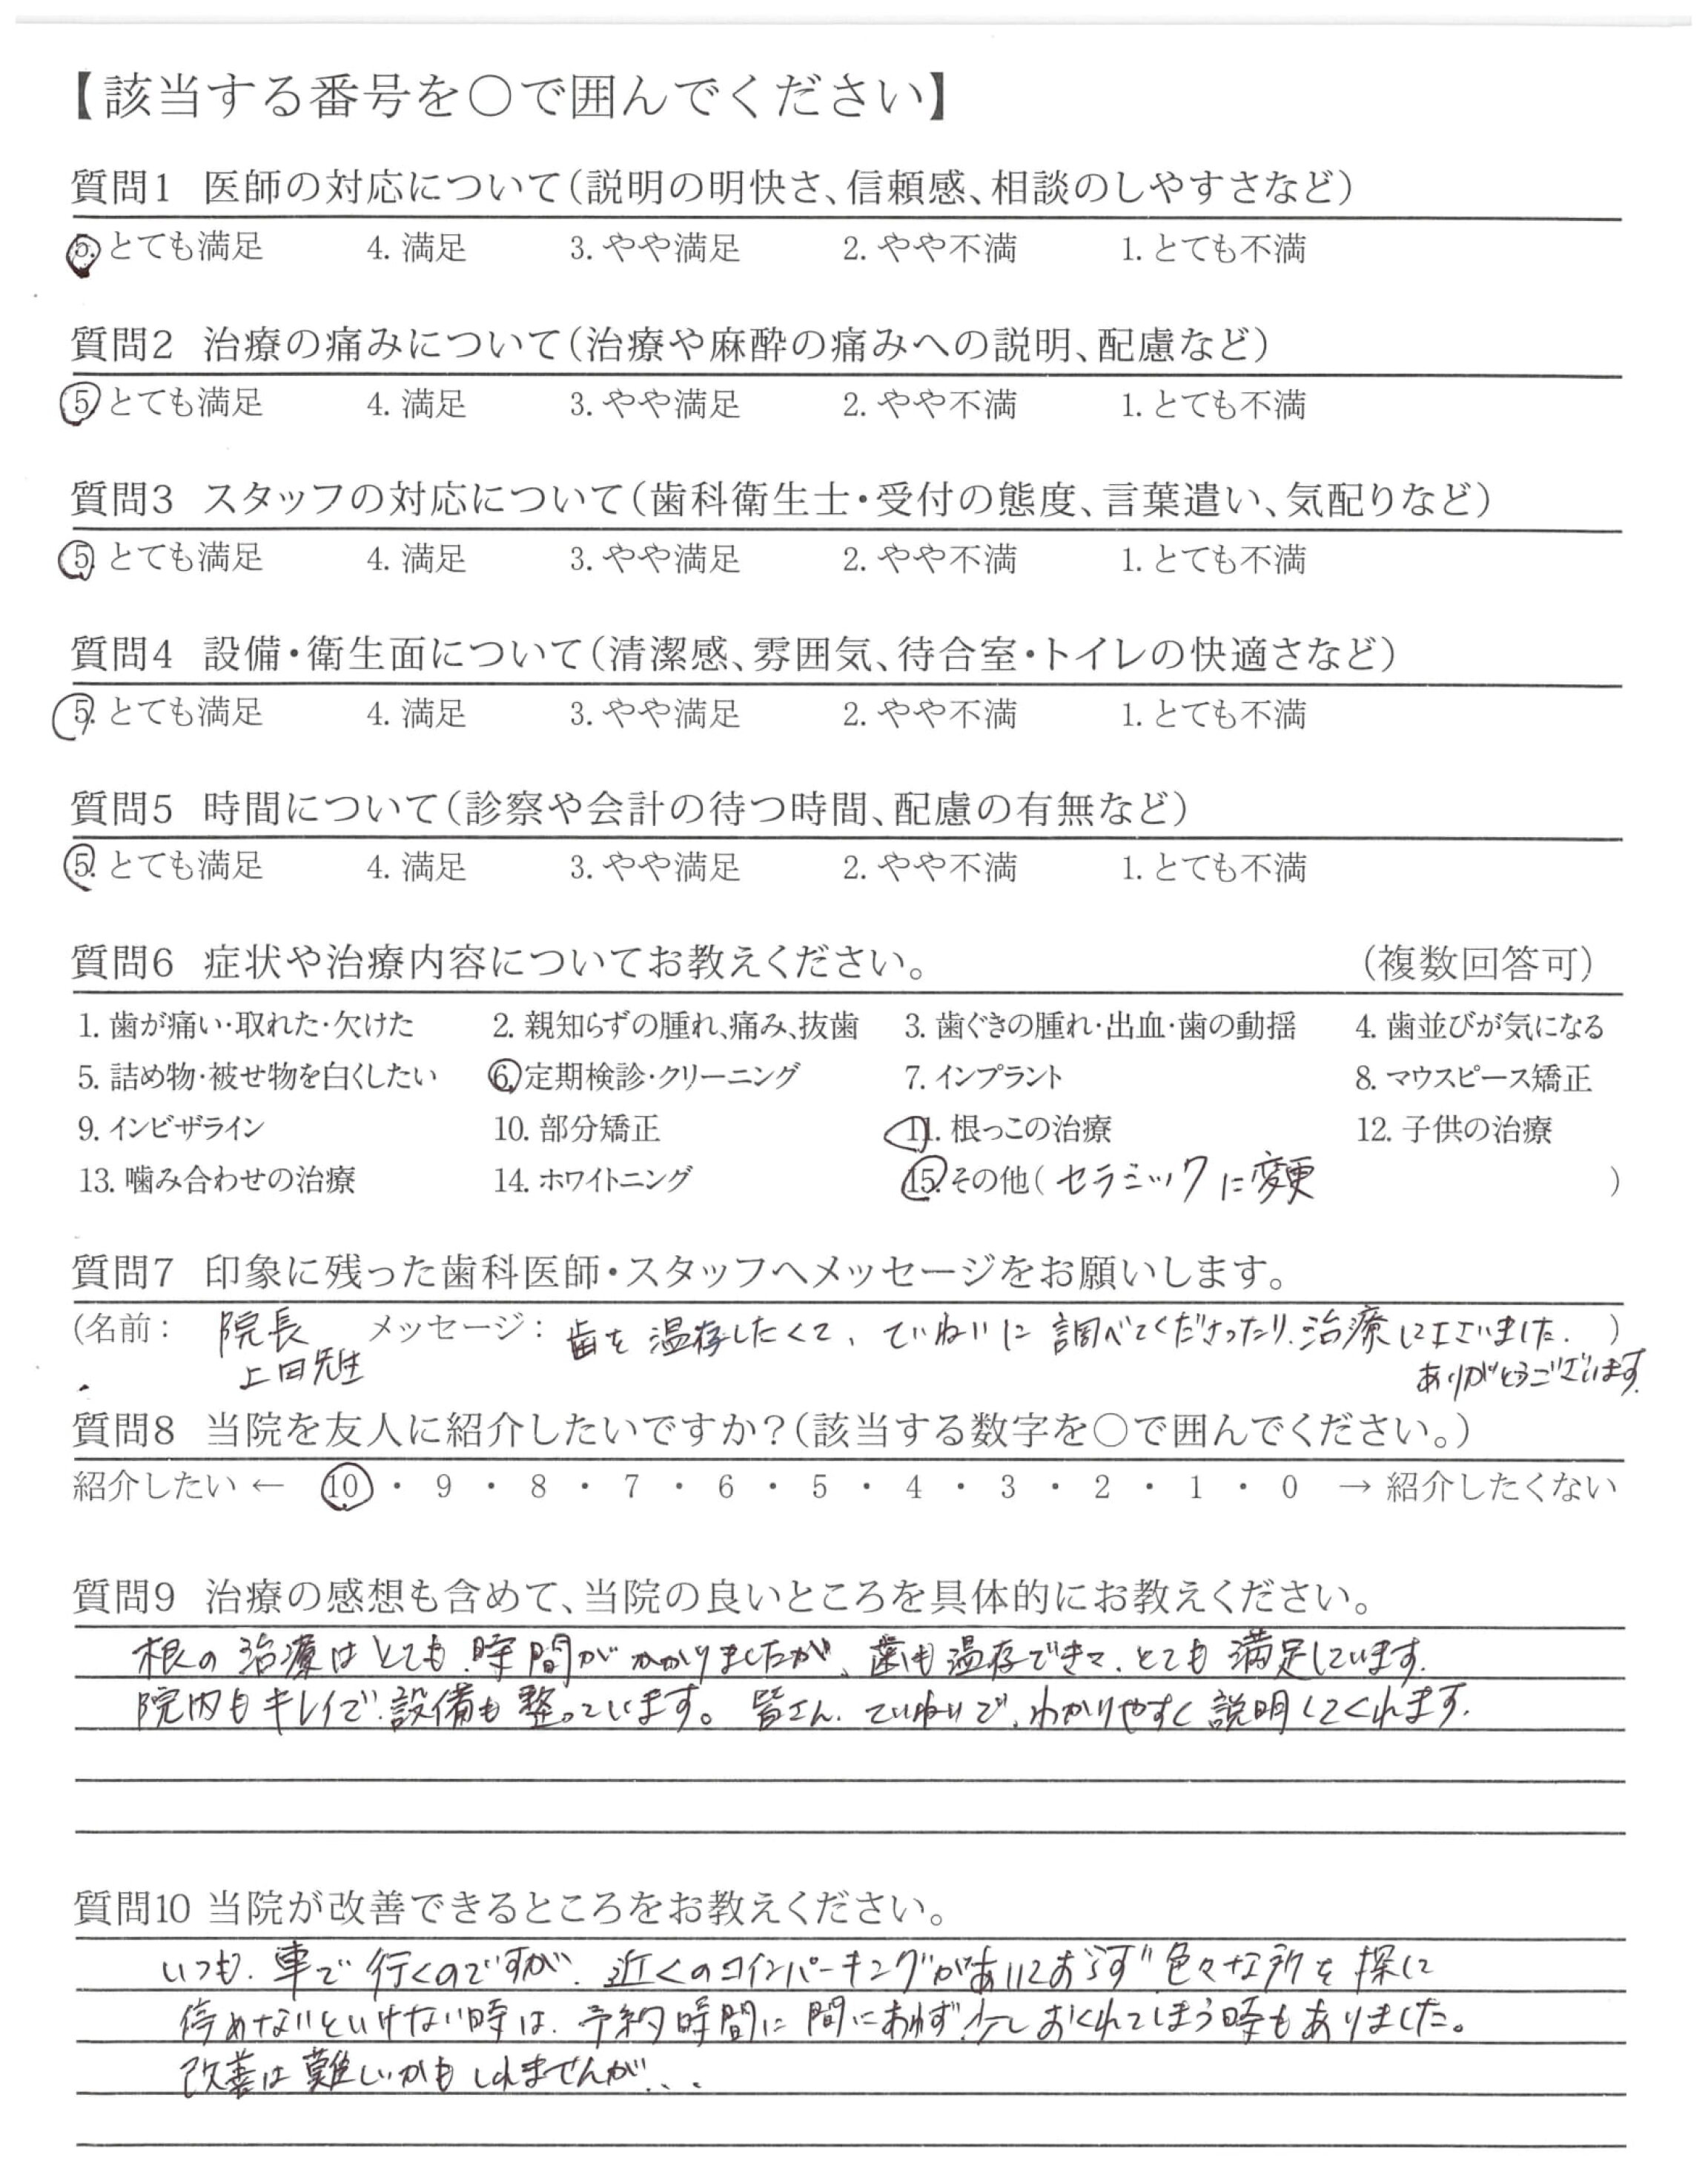 【該当する番号を○で囲んでください】
質問1 医師の対応について（説明の明快さ、信頼感、相談のしやすさなど）
5. とても満足 4. 満足 3. やや満足 2. やや不満 1. とても不満
質問2 治療の痛みについて（治療や麻酔の痛みへの説明、配慮など）
5 とても満足 4. 満足 3. やや満足 2. やや不満 1. とても不満
質問3 スタッフの対応について（歯科衛生士・受付の態度、言葉遣い、気配りなど）
5. とても満足 4. 満足 3. やや満足 2. やや不満 1. とても不満
質問4 設備・衛生面について（清潔感、雰囲気、待合室・トイレの快適さなど）
5. とても満足 4. 満足 3. やや満足 2. やや不満 1. とても不満
質問5 時間について（診察や会計の待つ時間、配慮の有無など）
5. とても満足 4. 満足 3. やや満足 2. やや不満 1. とても不満
質問6 症状や治療内容についてお教えください。 （複数回答可）
1. 歯が痛い・取れた・欠けた 2. 親知らずの腫れ、痛み、抜歯 3. 歯ぐきの腫れ・出血・歯の動揺 4. 歯並びが気になる
5. 詰め物・被せ物を白くしたい 6. 定期検診・クリーニング 7. インプラント 8. マウスピース矯正
9. インビザライン 10. 部分矯正 11. 根っこの治療 12. 子供の治療
13. 噛み合わせの治療 14. ホワイトニング 15. その他（ セラミックに変更 ）
質問7 印象に残った歯科医師・スタッフへメッセージをお願いします。
（名前： 院長 メッセージ： 歯を温存したくて、ていねいに調べてくださったり、治療して下さいました. ）
上田先生 ありがとうございます.
質問8 当院を友人に紹介したいですか？（該当する数字を○で囲んでください。）
紹介したい ← 10 ・ 9 ・ 8 ・ 7 ・ 6 ・ 5 ・ 4 ・ 3 ・ 2 ・ 1 ・ 0 → 紹介したくない
質問9 治療の感想も含めて、当院の良いところを具体的にお教えください。
根の治療はとても、時間がかかりましたが、歯も温存できて、とても満足しています.
院内もキレイで、設備も整っています。皆さん、ていねいで、わかりやすく説明してくれます.
質問10 当院が改善できるところをお教えください。
いつも、車で行くのですが、近くのコインパーキングがあいておらず色々な所を探して
停めないといけない時は、予約時間に間にあわず少しおくれてしまう時もありました。
改善は難しいかもしれませんが...